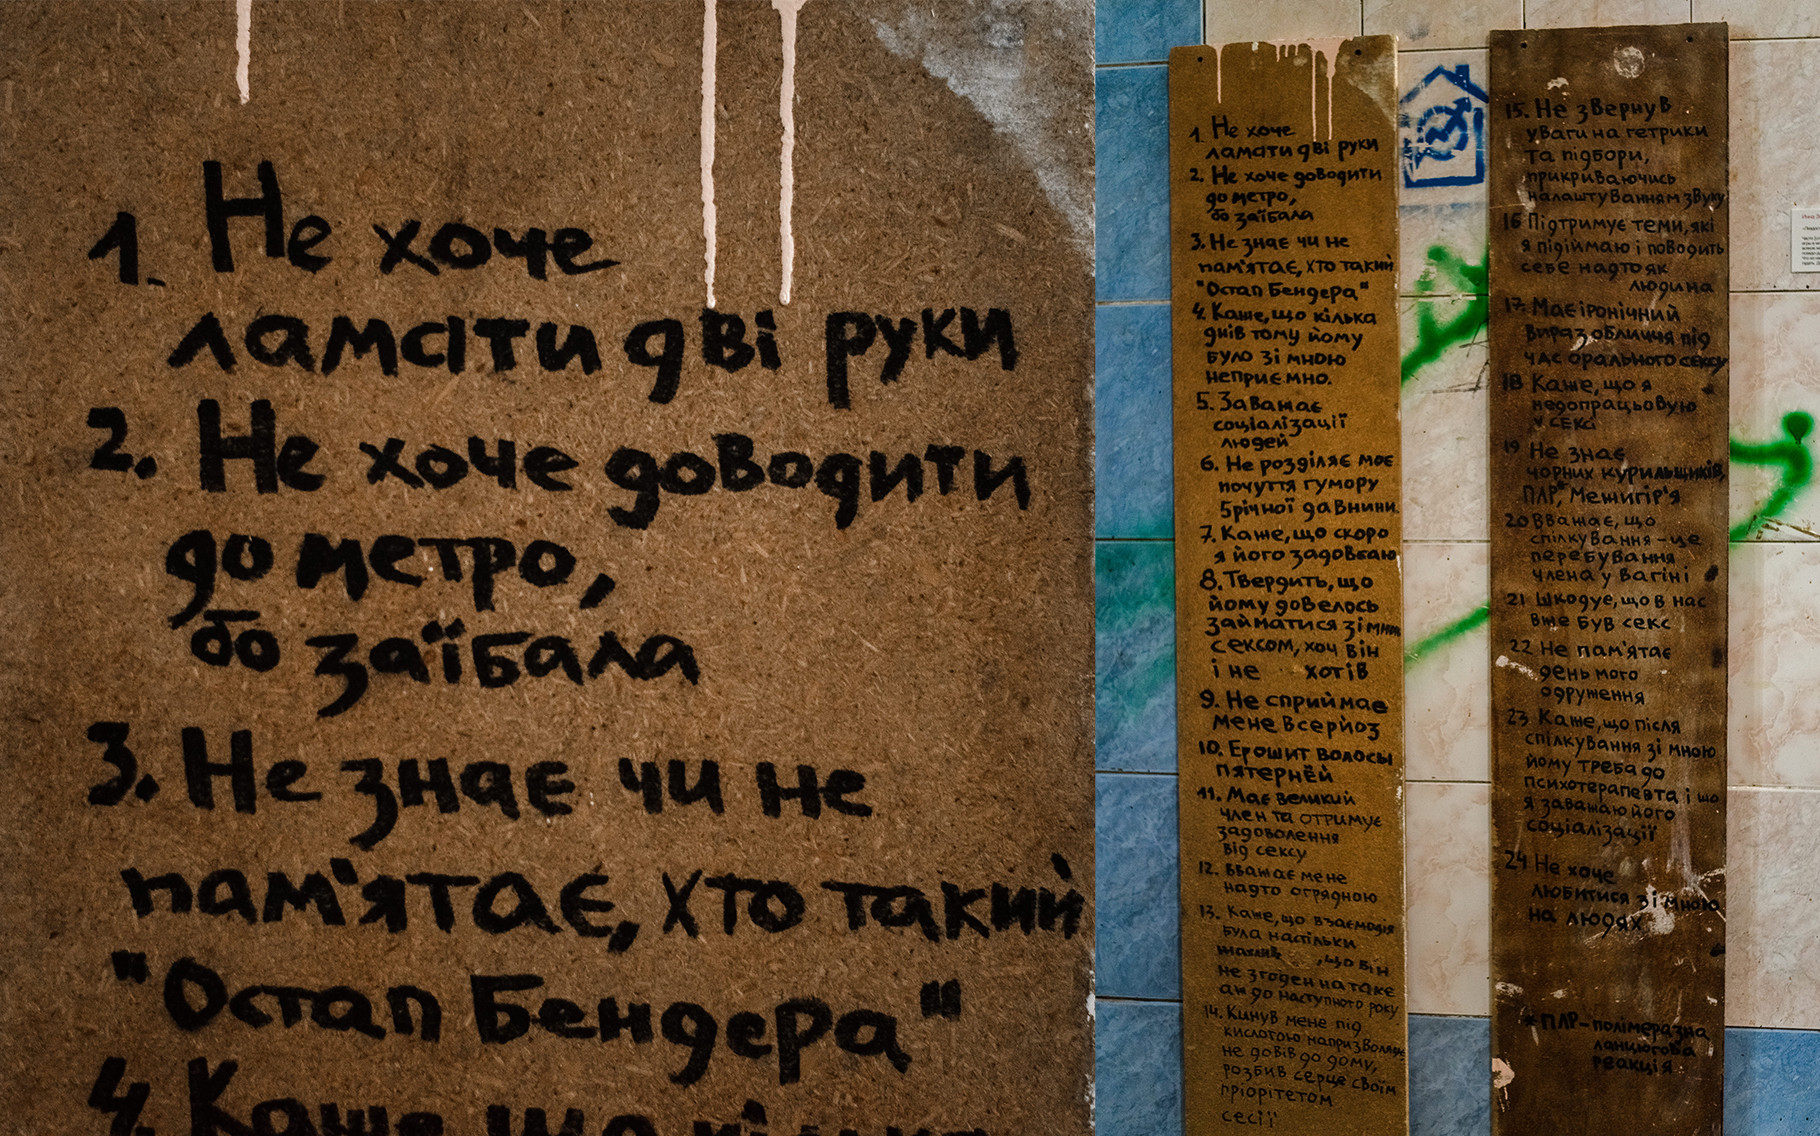 1. Не хоче
ламати дві руки
2. Не хоче доводити
до метро,
бо заїбала
3. Не знає чи не
пам'ятає, хто такий
"Остап Бендера"
4. Каже що кілька
1. Не хоче
ламати дві руки
2. Не хоче доводити
до метро,
бо заїбала
3. Не знає чи не
пам'ятає, хто такий
"Остап Бендера"
4. Каже, що кілька
днів тому йому
було зі мною
неприємно.
5. Заважає
соціалізації
людей
6. Не розділяє моє
почуття гумору
5річної давнини.
7. Каже, що скоро
я його задовбаю
8. Твердить, що
йому довелось
займатися зі мною
сексом, хоч він
і не хотів
9. Не сприймає
мене всерйоз
10. Ерошит волосы
пятернёй
11. Має великий
член та отримує
задоволення
від сексу
12. Вважає мене
надто огрядною
13. Каже, що взаємодія
була настільки
, що він
не згоден на таке
аж до наступного року
14. Кинув мене під
кислотою напризволяще,
не довів до дому,
розбив серце своїм
пріорітетом
сесії
15. Не звернув
уваги на гетрики
та підбори,
прикриваючись
налаштуванням звуку
16 Підтримує теми, які
я підіймаю і поводить
себе надто як
людина
17. Має іронічний
вираз обличчя під
час орального сексу
18 Каже, що я
недопрацьовую
у сексі
19 Не знає
чорних курильщиків,
ПЛР*, Межигір'я
20 Вважає, що
спілкування - це
перебування
члена у вагіні
21 Шкодує, що в нас
вже був секс
22 Не пам'ятає
день мого
одруження
23 Каже, що після
спілкування зі мною
йому треба до
психотерапевта і що
я заважаю його
соціалізації
24 Не хоче
любитися зі мною
на людях
* ПЛР - полімеразна
ланцюгова
реакція